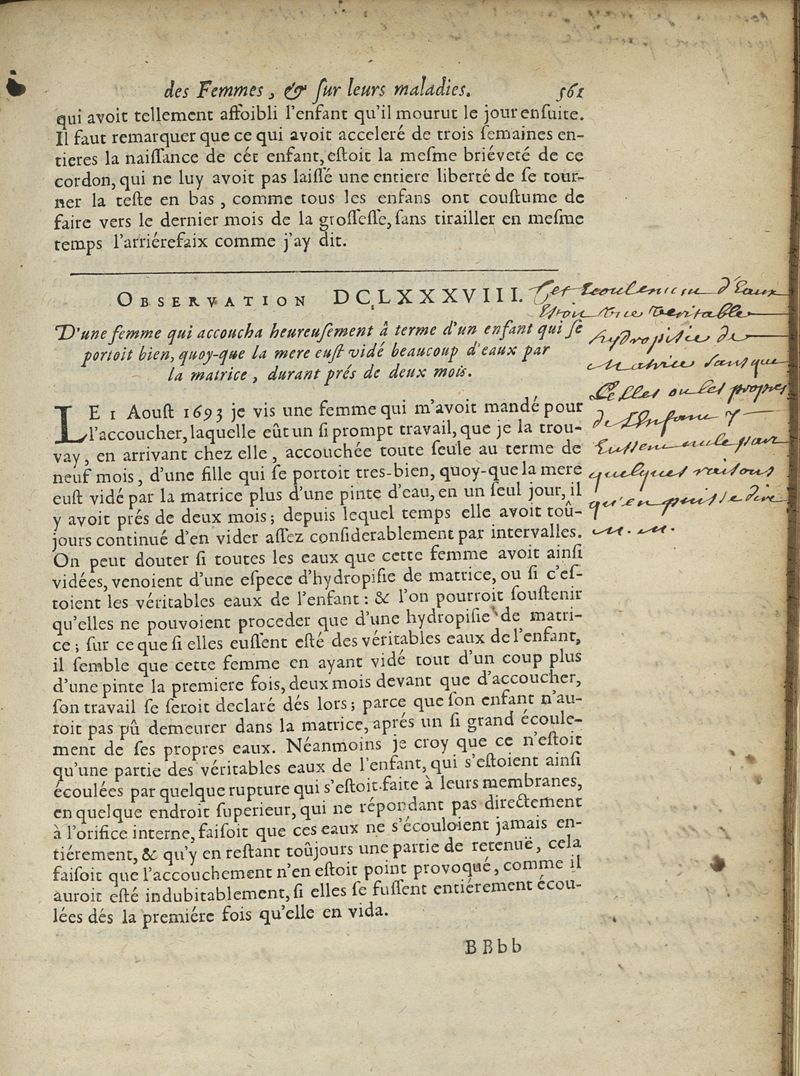 des Femmes, & ſur leurs maladies. 561
qui avoit tellement affoibli l'enfant qu'il mourut le jour enſuite.
Il faut remarquer que ce qui avoit acceleré de trois ſemaines en-
tieres la naiſſance de cét enfant, eſtoit la meſme briéveté de ce
cordon, qui ne luy avoit pas laiſſé une entiere liberté de ſe tour-
ner la teſte en bas, comme tous les enfans ont couſtume de
faire vers le dernier mois de la groſſeſſe, ſans tirailler en meſme
temps l'arriérefaix comme j'ay dit.
OBSERVATION DCLXXXVIII.
D'une femme qui accoucha heureuſement à terme d'un enfant qui ſe
portoit bien, quoy-que la mere euſt vidé beaucoup d'eaux par
la matrice, durant prés de deux mois.
Cet écoulement d'Eaux
Etoit une veritable
hydropisie de
matrice sans que
Celles ou les propres
de l'Enfant y
Eussent nulle part
quelques raisons
qu'en puisse dire
m. m.
LE 1 Aouſt 1693 je vis une femme qui m'avoit mandé pour
l'accoucher, laquelle eût un ſi prompt travail, que je la trou-
vay, en arrivant chez elle, accouchée toute ſeule au terme de
neuf mois, d'une fille qui ſe portoit tres-bien, quoy-que la mere
euſt vidé par la matrice plus d'une pinte d'eau, en un ſeul jour, il
y avoit prés de deux mois; depuis lequel temps elle avoit toû-
jours continué d'en vider aſſez conſiderablement par intervalles.
On peut douter ſi toutes les eaux que cette femme avoit ainſi
vidées, venoient d'une eſpece d'hydropiſie de matrice, ou ſi c'eſ-
toient les véritables eaux de l'enfant: & l'on pourroit ſouſtenir
qu'elles ne pouvoient proceder que d'une hydropiſie de matri-
ce; ſur ce que ſi elles euſſent eſté des véritables eaux de l'enfant,
il ſemble que cette femme en ayant vidé tout d'un coup plus
d'une pinte la premiere fois, deux mois devant que d'accoucher,
ſon travail ſe ſeroit declaré dés lors; parce que ſon enfant n'au-
roit pas pû demeurer dans la matrice, aprés un ſi grand écoule-
ment de ſes propres eaux. Néanmoins je croy que ce n'eſtoit
qu'une partie des véritables eaux de l'enfant, qui s'eſtoient ainſi
écoulées par quelque rupture qui s'eſtoit faite à leurs membranes,
en quelque endroit ſuperieur, qui ne répondant pas directement
à l'orifice interne, faiſoit que ces eaux ne s'écouloient jamais en-
tiérement, & qu'y en reſtant toûjours une partie de retenuë, cela
faiſoit que l'accouchement n'en eſtoit point provoqué, comme il
auroit eſté indubitablement, ſi elles ſe fuſſent entiérement écou-
lées dés la premiére fois qu'elle en vida.
BBbb